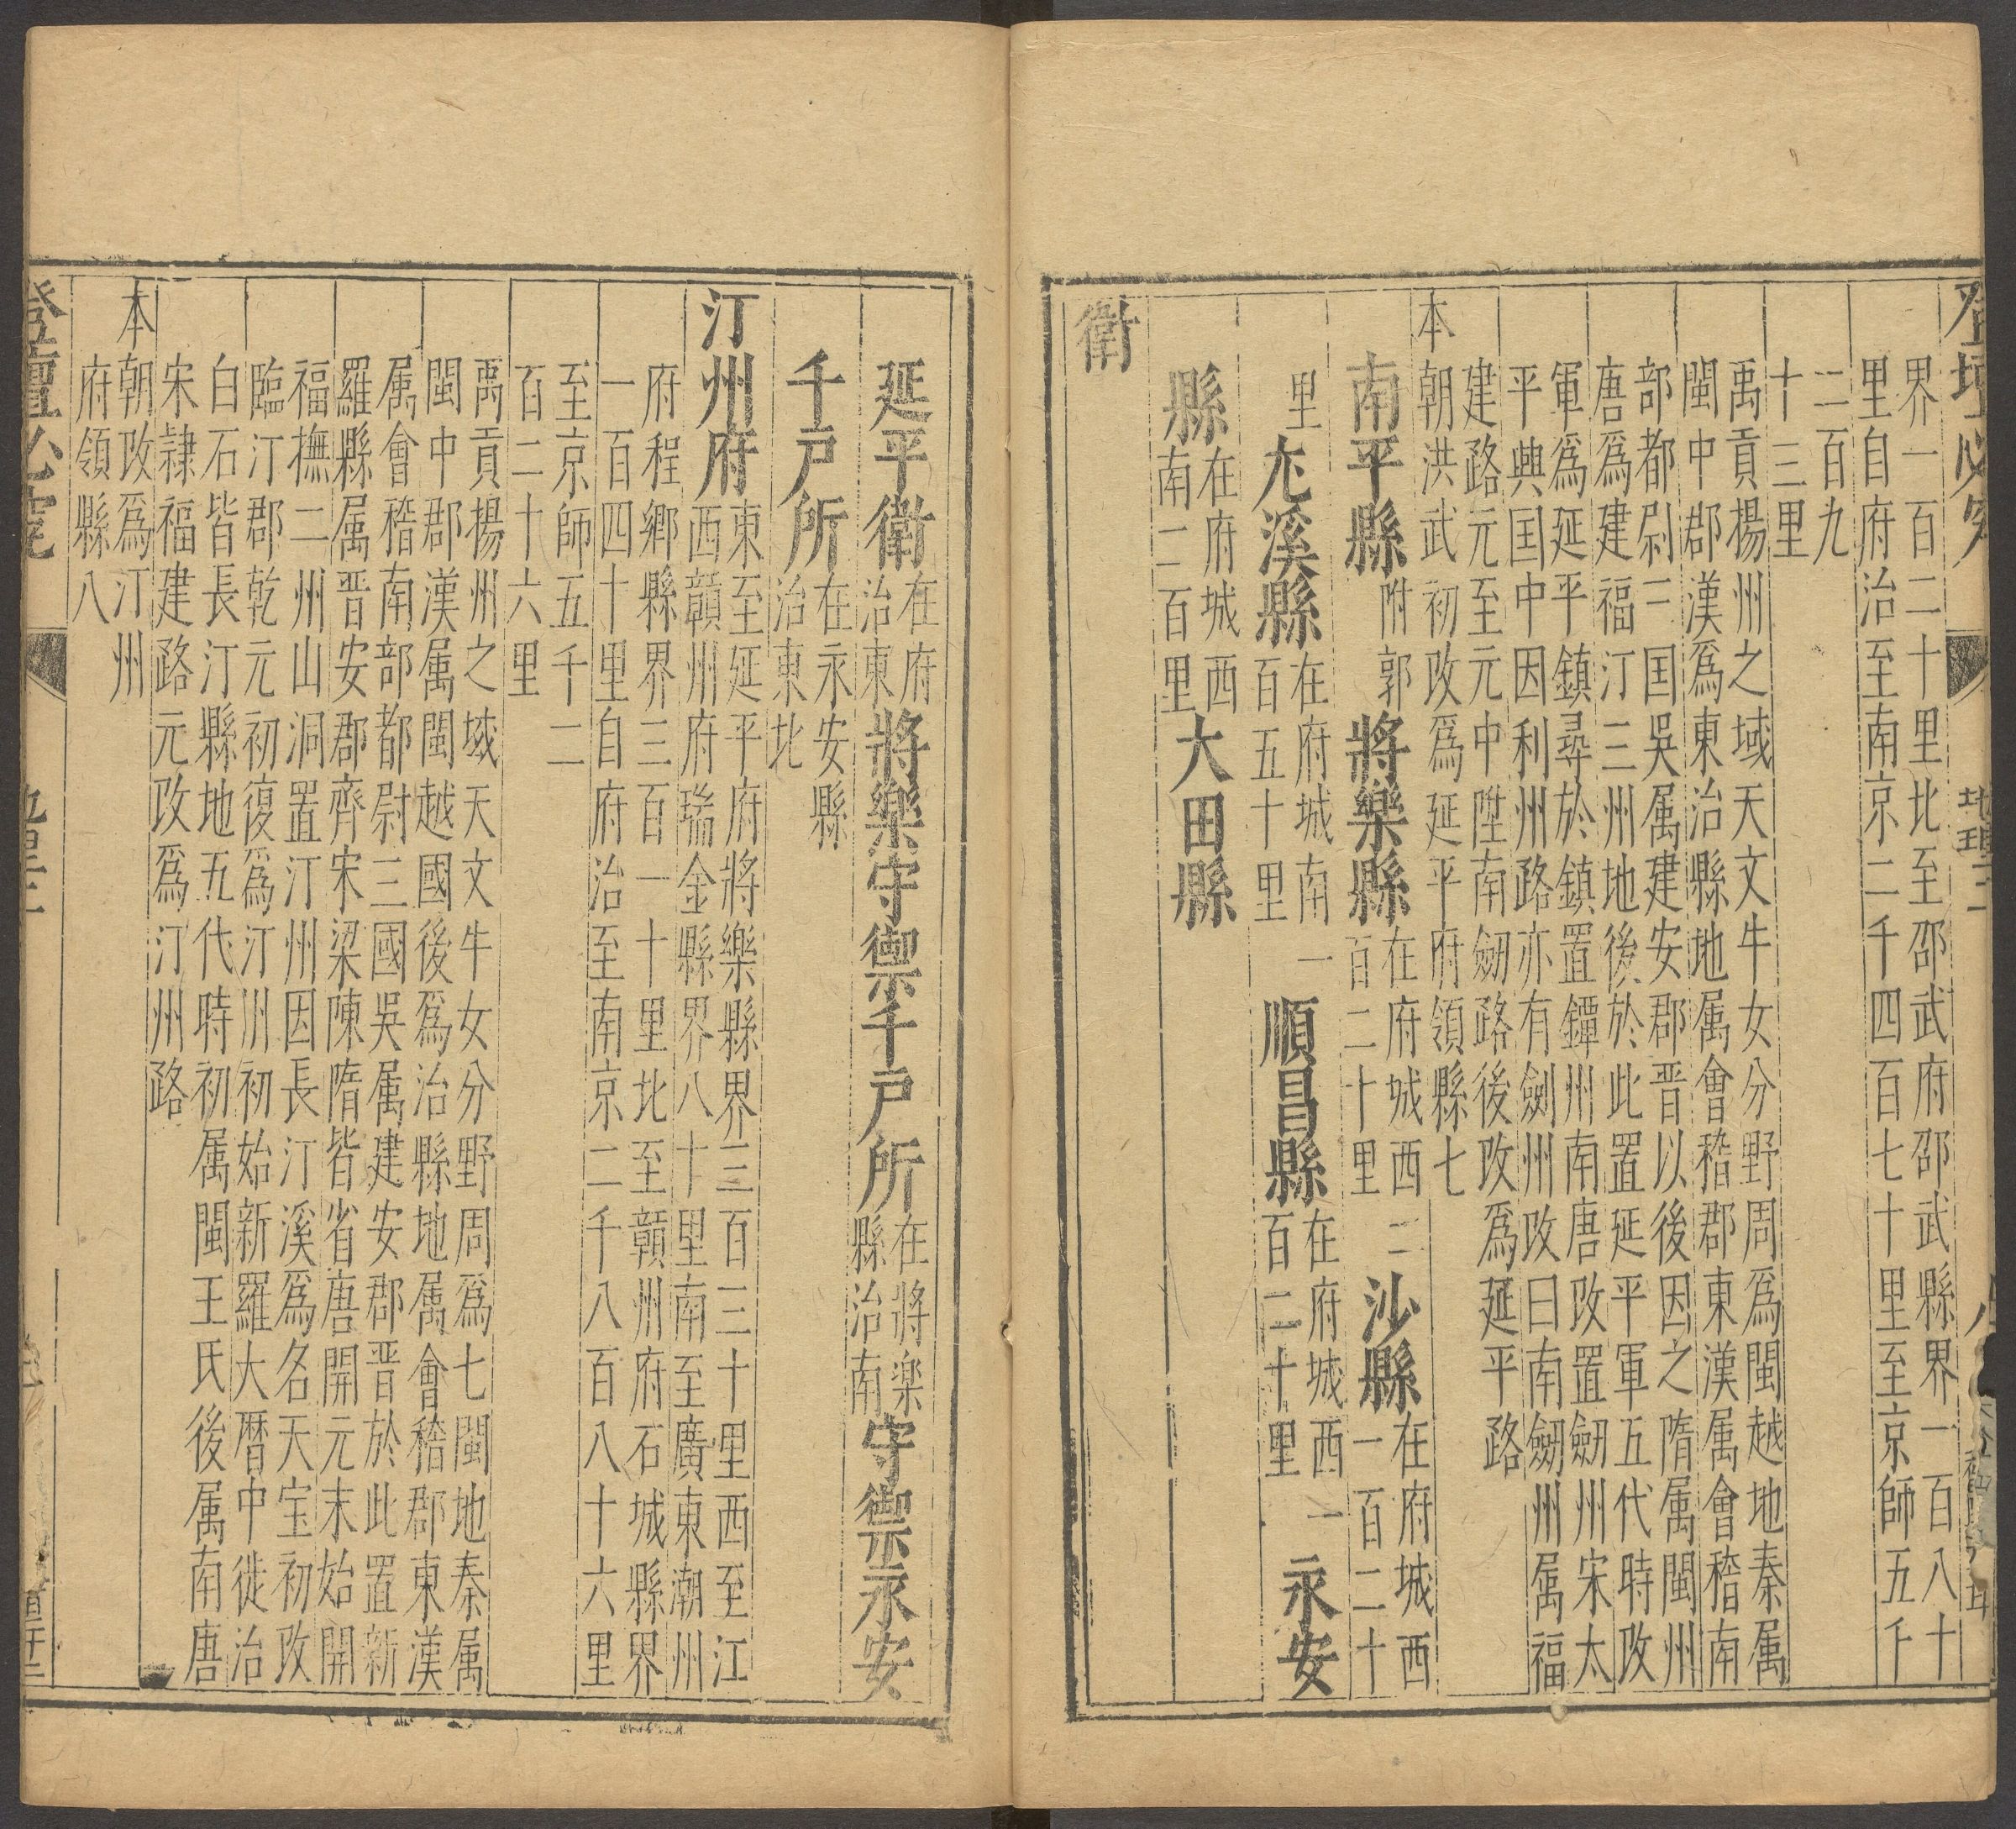 界一百二十里北至邵武府邵武縣界一百八十
里自府治至南京二千四百七十里至京師五千
二百九
十三里
禹貢揚州之域天文牛女分野周爲閩越地秦属
閩中郡漢爲東治縣地属會稽郡東漢属會稽南
部都尉三国吳属建安郡晋以後因之隋属閩州
唐爲建福汀三州地後於此置延平軍五代時改
軍爲延平鎮尋於鎮置鐔州南唐改置劒州宋太
平興国中因利州路亦有劍州改曰南劒州属福
建路元至元中陞南劒路後改爲延平路
本朝洪武初改爲延平府領縣七
南平縣附郭 將樂縣在府城西二百二十里 沙縣在府城西一百二十
里 尤溪縣在府城南一百五十里 順昌縣在府城西一百二十里 永安
縣在府城西南二百里 大田縣
衛
延平衛在府治東 將樂守禦千户所在將樂縣治南 守禦永安
千户所在永安縣治東北
汀州府東至延平府將樂縣界三百三十里西至江
西贛州府瑞金縣界八十里南至廣東潮州
府程鄉縣界三百一十里北至贛州府石城縣界
一百四十里自府治至南京二千八百八十六里
至京師五千二
百二十六里
禹貢揚州之域天文牛女分野周爲七閩地秦属
閩中郡漢属閩越國後爲治縣地属會稽郡東漢
属會稽南部都尉三國吳属建安郡晋於此置新
羅縣属晋安郡齊宋梁陳隋皆省唐開元末始開
福撫二州山洞置汀州因長汀溪爲名天宝初改
臨汀郡乾元初復爲汀州初始新羅大曆中徙治
白石皆長汀縣地五代時初属閩王氏後属南唐
宋隷福建路元改爲汀州路
本朝改爲汀州
府領縣八